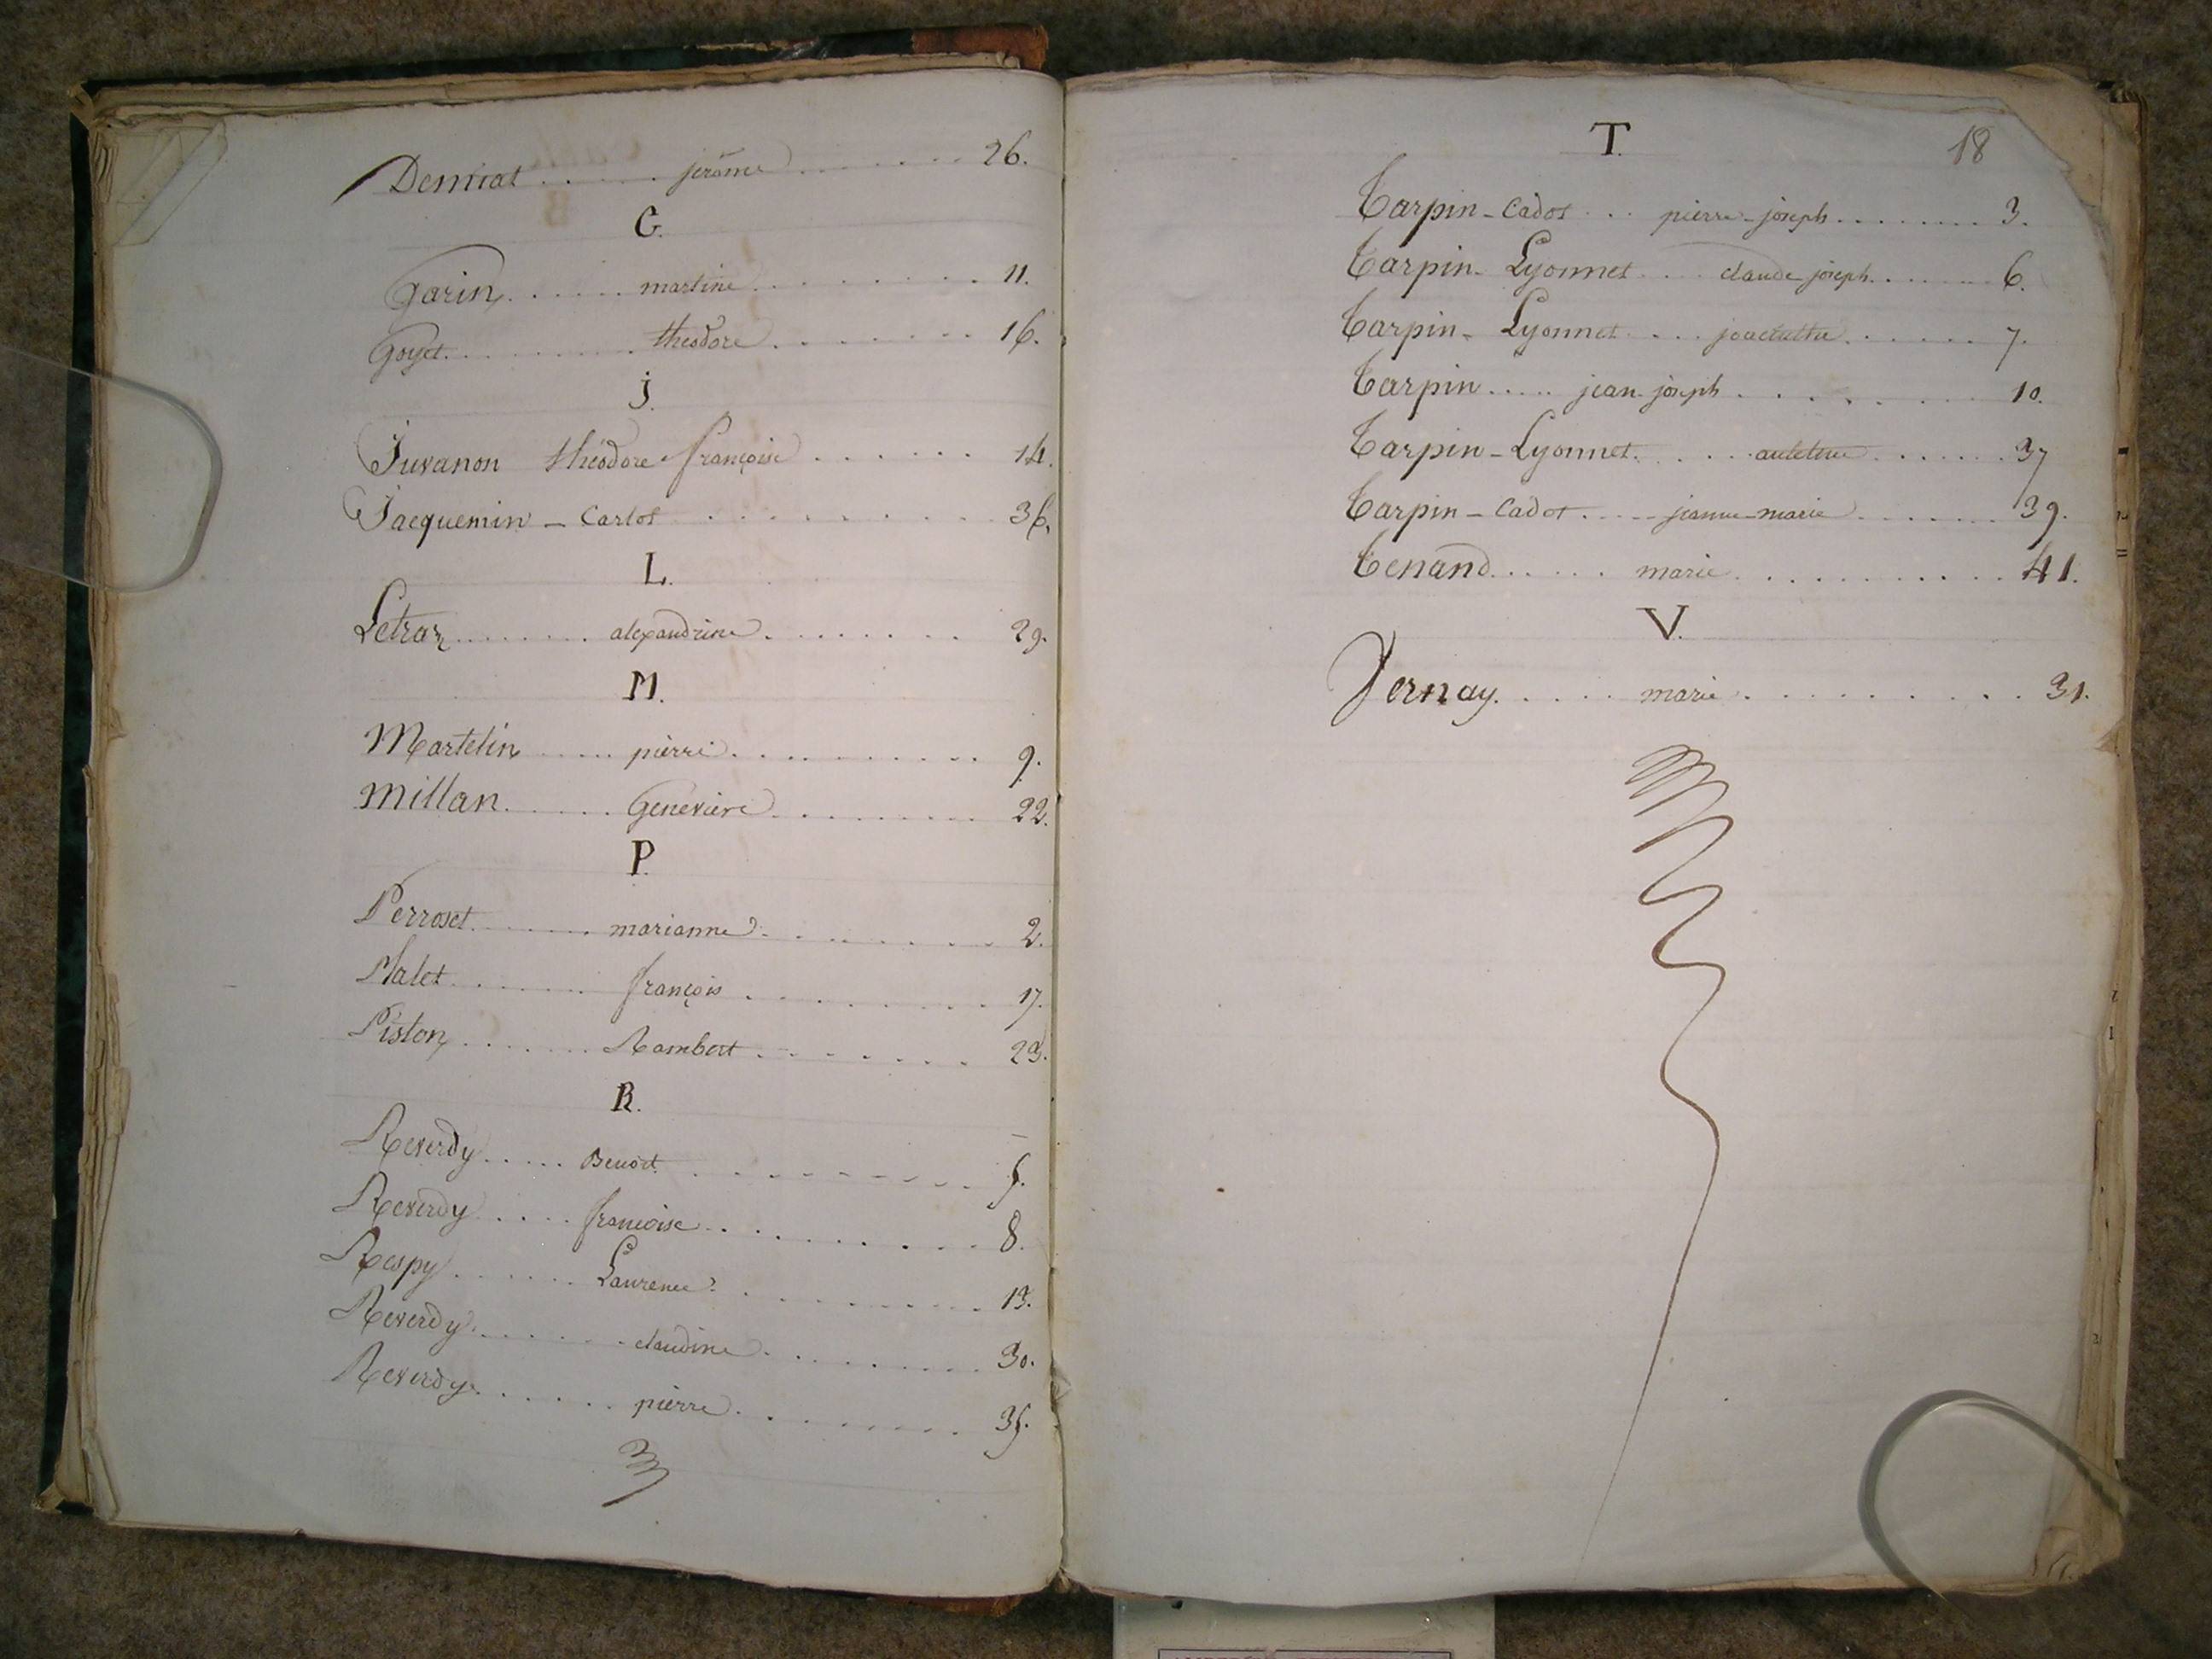 Demiat ...... jérôme ....... 26.
G.
Garin ...... martine ........ 11.
Goyet ........ théodore ....... 16.
J.
Juvanon théodore françoise ...... 14.
Jacquemin - Carlot ......... 36.
L.
Letraz ........ alexandrine ........ 29.
M.
Martelin ..... pierre ......... 9.
Millan ...... Geneviève ........ 22.
P.
Perroset ...... marianne ....... 2.
Malet ....... françois ........ 17.
Piston ....... Rambert ....... 23.
R.
Reverdy ..... Benoit ......... 5.
Reverdy ..... françoise ......... 8.
Respy ...... Laurence ........ 13.
Reverdy ....... claudine ........ 30.
Reverdy ...... pierre ........ 35.
T.
18
Tarpin - Cadot ... pierre-joseph ........ 3.
Tarpin - Lyonnet .... claude-joseph ....... 6.
Tarpin - Lyonnet .... ....... 7.
Tarpin ..... jean-joseph ........ 10.
Tarpin - Lyonnet ..... ....... 37
Tarpin - Cadot ..... jeanne-marie ....... 39.
Tenand ...... marie ........... 41.
V.
Vernay ..... marie .......... 31.